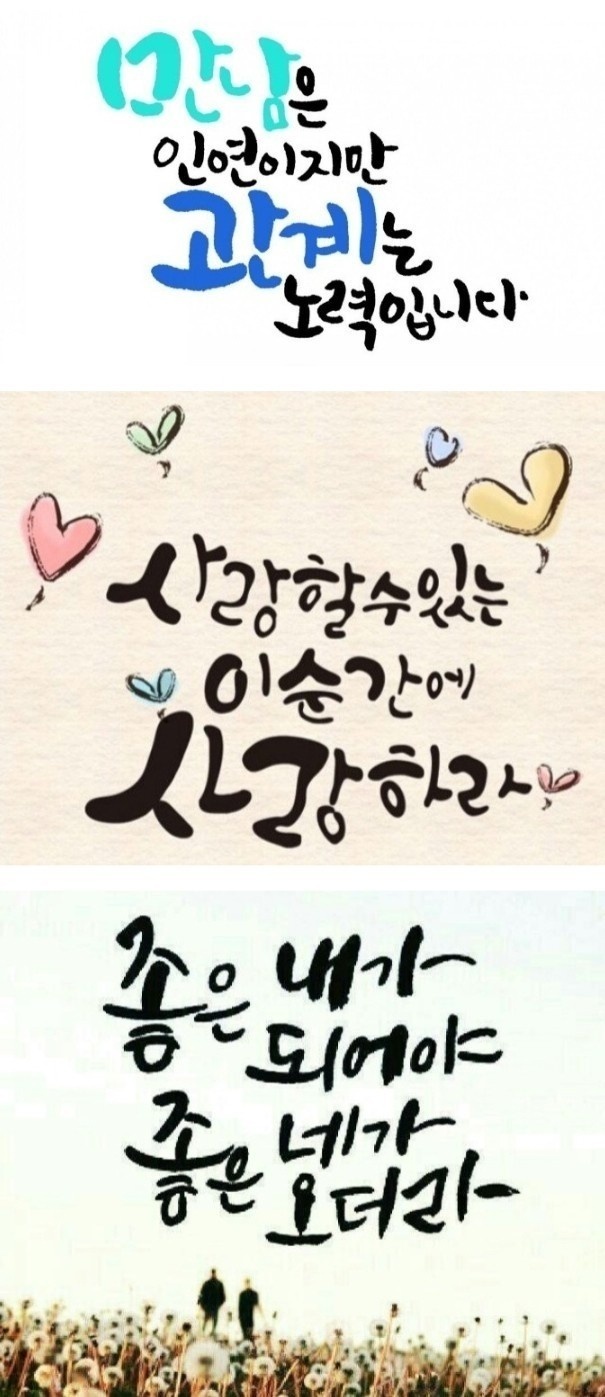 만남은
인연이지만
관계는
노력입니다.
사랑할수있는
이순간에
사랑하라
좋은 내가
되어야
좋은 네가
오더라